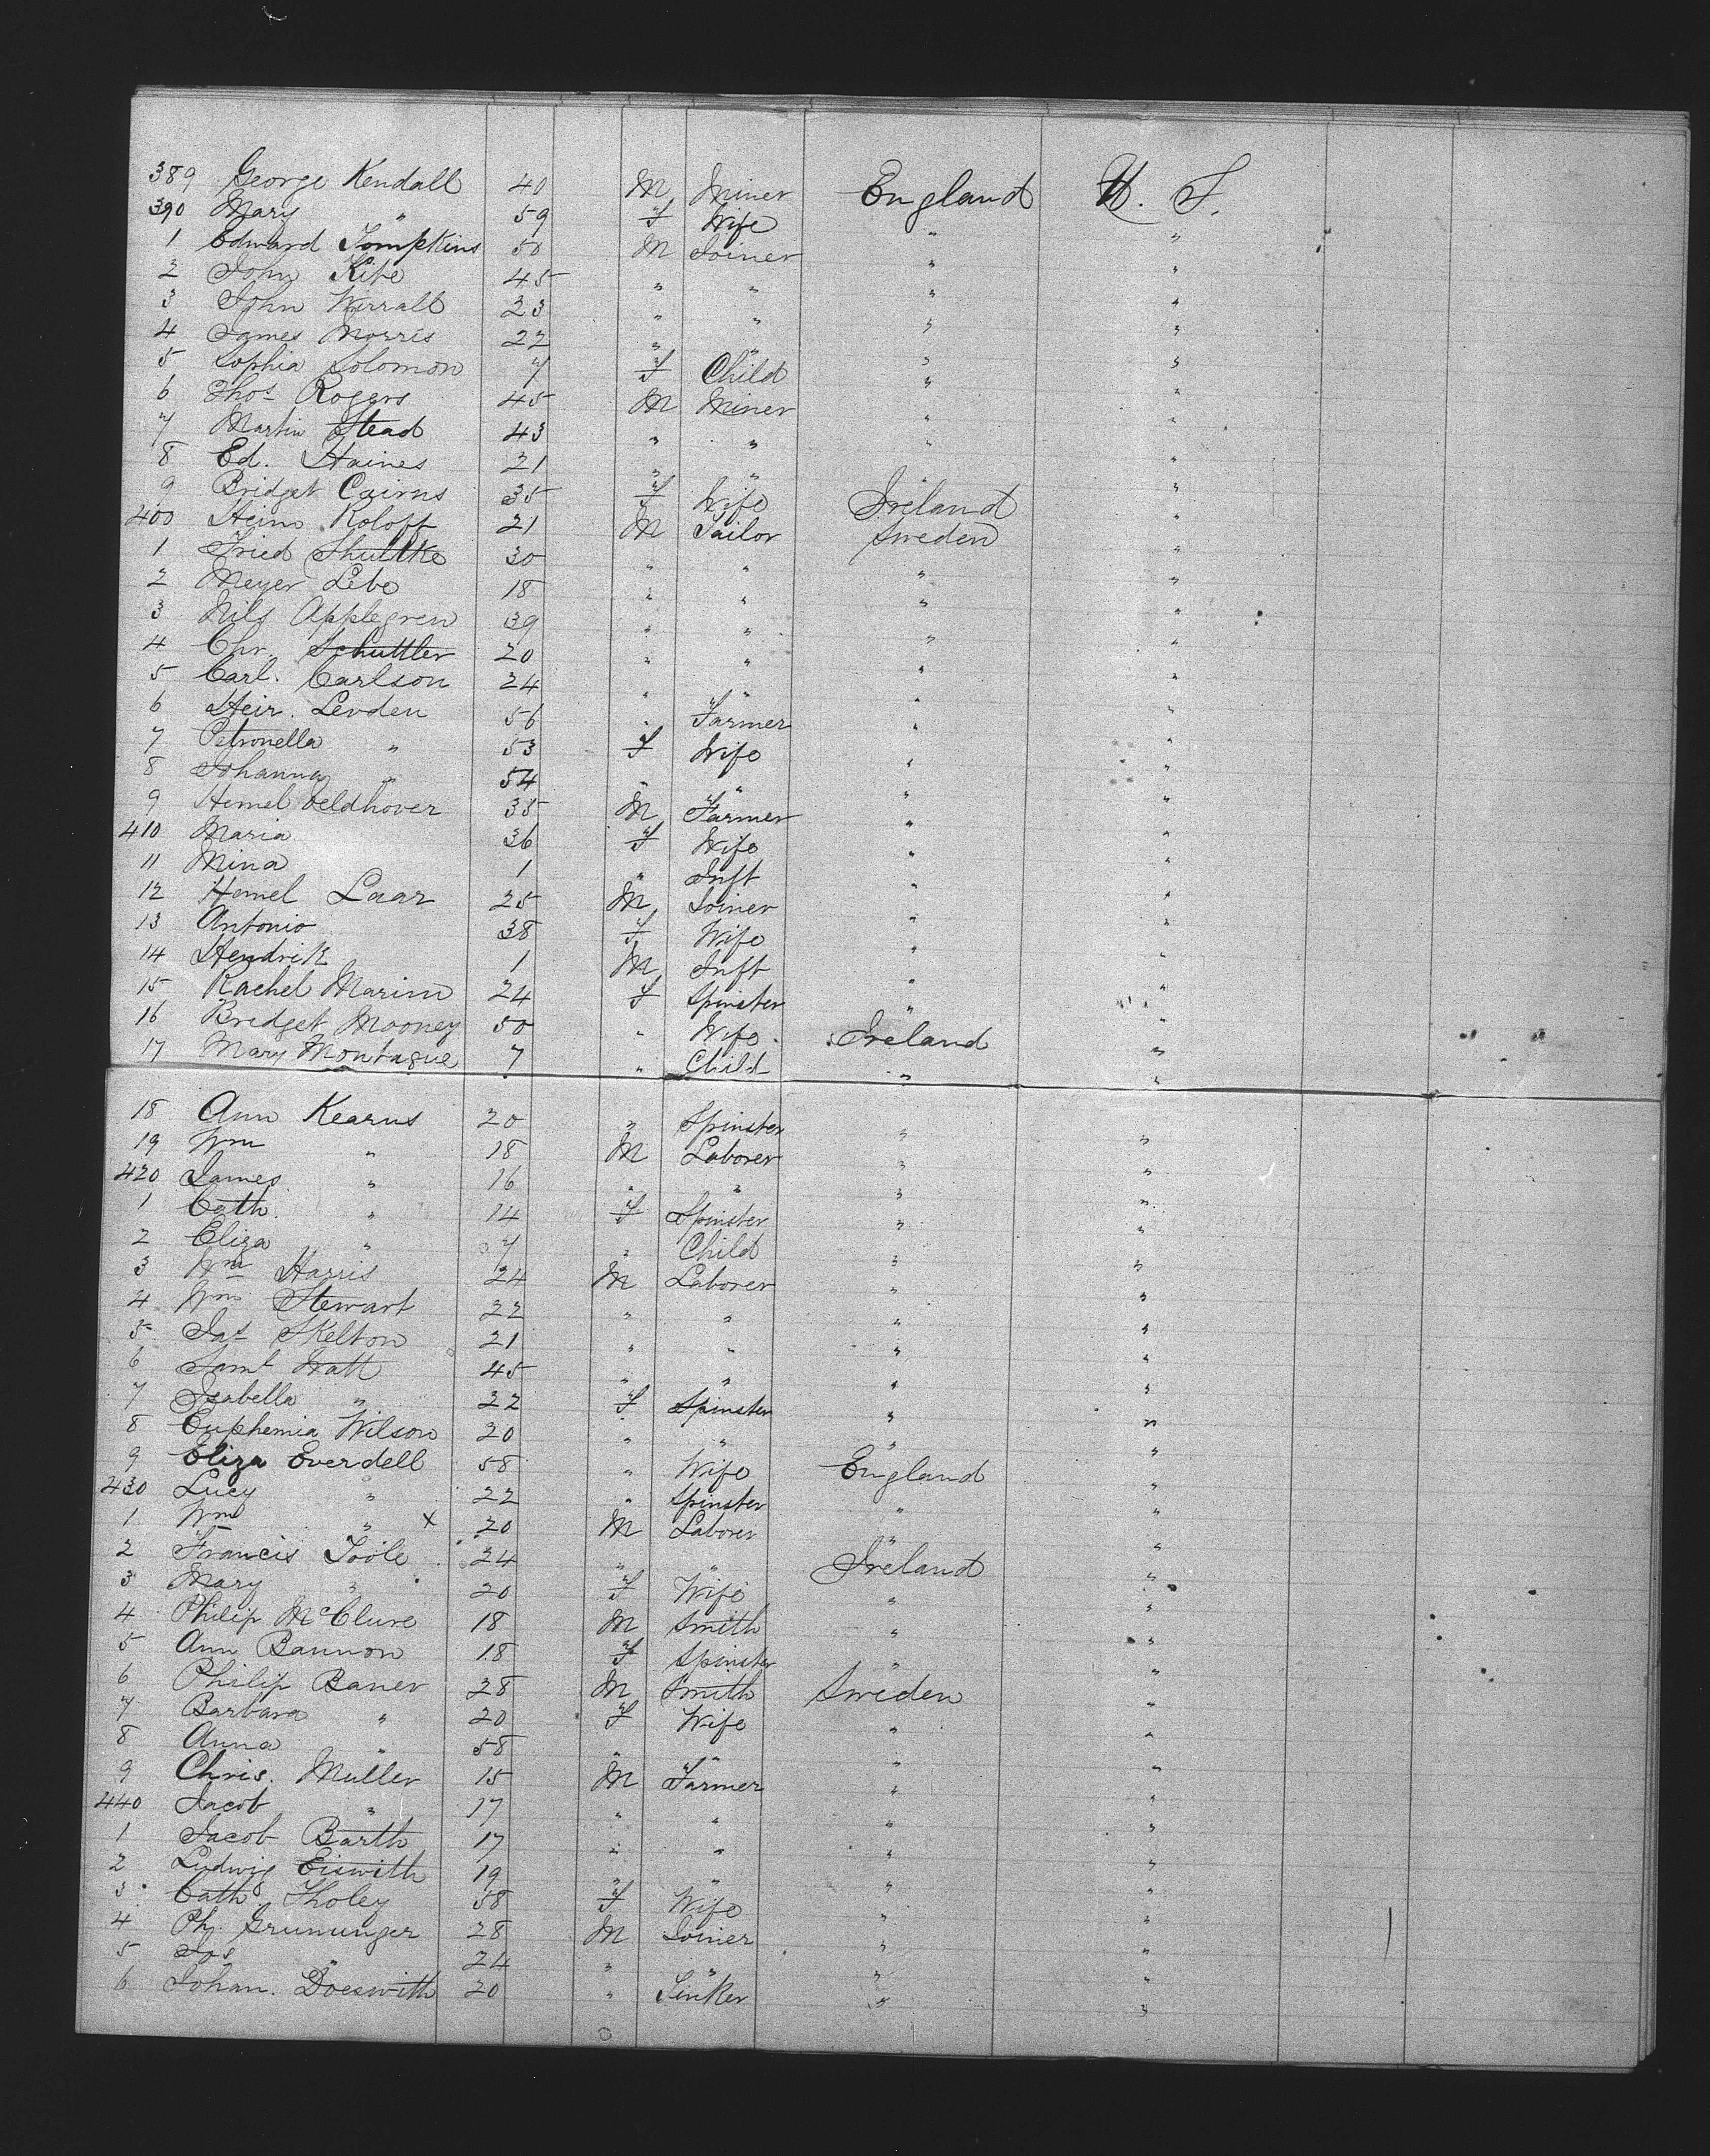 389 George Kendall 40 M Miner England U. S.
390 Mary " 59 F Wife " "
1 Edward Tompkins 50 M Joiner " "
2 John Kite 45 " " " "
3 John Worrall 23 " " " "
4 James Morris 22 " " " "
5 Sophia Solomon 7 F Child " "
6 Thos Rogers 45 M Miner " "
7 Martin Stead 43 " " " "
8 Ed. Haines 21 " " " "
9 Bridget Cairns 35 F Wife Ireland "
400 Hein Roloff 21 M Tailor Sweden "
1 Fried Shultke 30 " " " "
2 Meyer Lebo 18 " " " "
3 Nils Applegren 39 " " " "
4 Chr. Schuttler 20 " " " "
5 Carl. Carlson 24 " " " "
6 Heir. Levden 56 " Farmer " "
7 Petronella " 53 F Wife " "
8 Johanna " 54 " " " "
9 Hemel Veldhover 35 M Farmer " "
410 Maria 36 F Wife " "
11 Mina 1 " Inft " "
12 Hemel Laar 25 M Joiner " "
13 Antonio 38 F Wife " "
14 Hendrik 1 M Inft " "
15 Rachel Marim 24 F Spinster " "
16 Bridget Mooney 50 " Wife Ireland "
17 Mary Montague 7 " Child " "
18 Ann Kearns 20 " Spinster " "
19 Wm " 18 M Laborer " "
420 James " 16 " " " "
1 Cath. " 14 F Spinster " "
2 Eliza " 7 " Child " "
3 Wm Harris 24 M Laborer " "
4 Wm Stewart 22 " " " "
5 Jas Skelton 21 " " " "
6 Saml Watt 45 " " " "
7 Isabella " 22 F Spinster " "
8 Euphemia Wilson 20 " " " "
9 Eliza Everdell 58 " Wife England "
430 Lucy " 22 " Spinster " "
1 Wm " x 20 M Laborer " "
2 Francis Toole 24 " " Ireland "
3 Mary " 20 F Wife " "
4 Philip McClure 18 M Smith " "
5 Ann Bannon 18 F Spinster " "
6 Philip Baner 28 M Smith Sweden "
7 Barbara " 20 F Wife " "
8 Anna " 58 " " " "
9 Chris. Muller 15 M Farmer " "
440 Jacob " 17 " " " "
1 Jacob Barth 17 " " " "
2 Ludwig Eiswith 19 " " " "
3 Cath Tholey 58 F Wife " "
4 Ph. Grununger 28 M Joiner " "
5 Jos " 24 " " " "
6 Johan. Doeswith 20 " Tinker " "